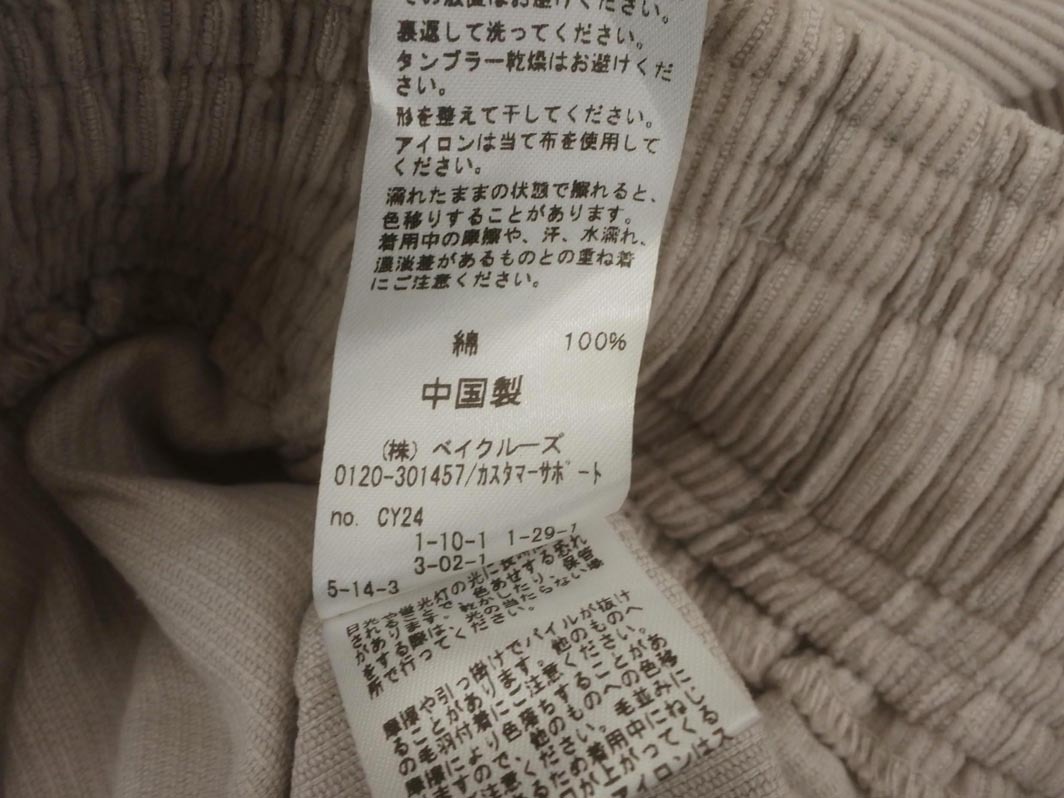 の放置はお避けください。
裏返して洗ってください。
タンブラー乾燥はお避けくだ
さい。
形を整えて干してください。
アイロンは当て布を使用して
ください。
濡れたままの状態で擦れると、
色移りすることがあります。
着用中の摩擦や、汗、水濡れ、
濃淡差があるものとの重ね着
にご注意ください。
綿 100%
中国製
(株) ベイクルーズ
0120-301457/カスタマーサポート
no. CY24
1-10-1 1-29-1
3-02-1
5-14-3
日光や蛍光灯の光に長時間
されますと、色あせする恐れ
があります。乾かしたり、保管
をする際は、光の当たらない場
所で行ってください。
摩擦や引っ掛けでパイルが抜け
ることがあります。他のものへ
の毛羽付着にご注意ください。
摩擦により色落ちすることがあ
りますので、他のものへの色移
ください。毛並みに
るため着用中にねじ
が上がってくる
アイロンはス